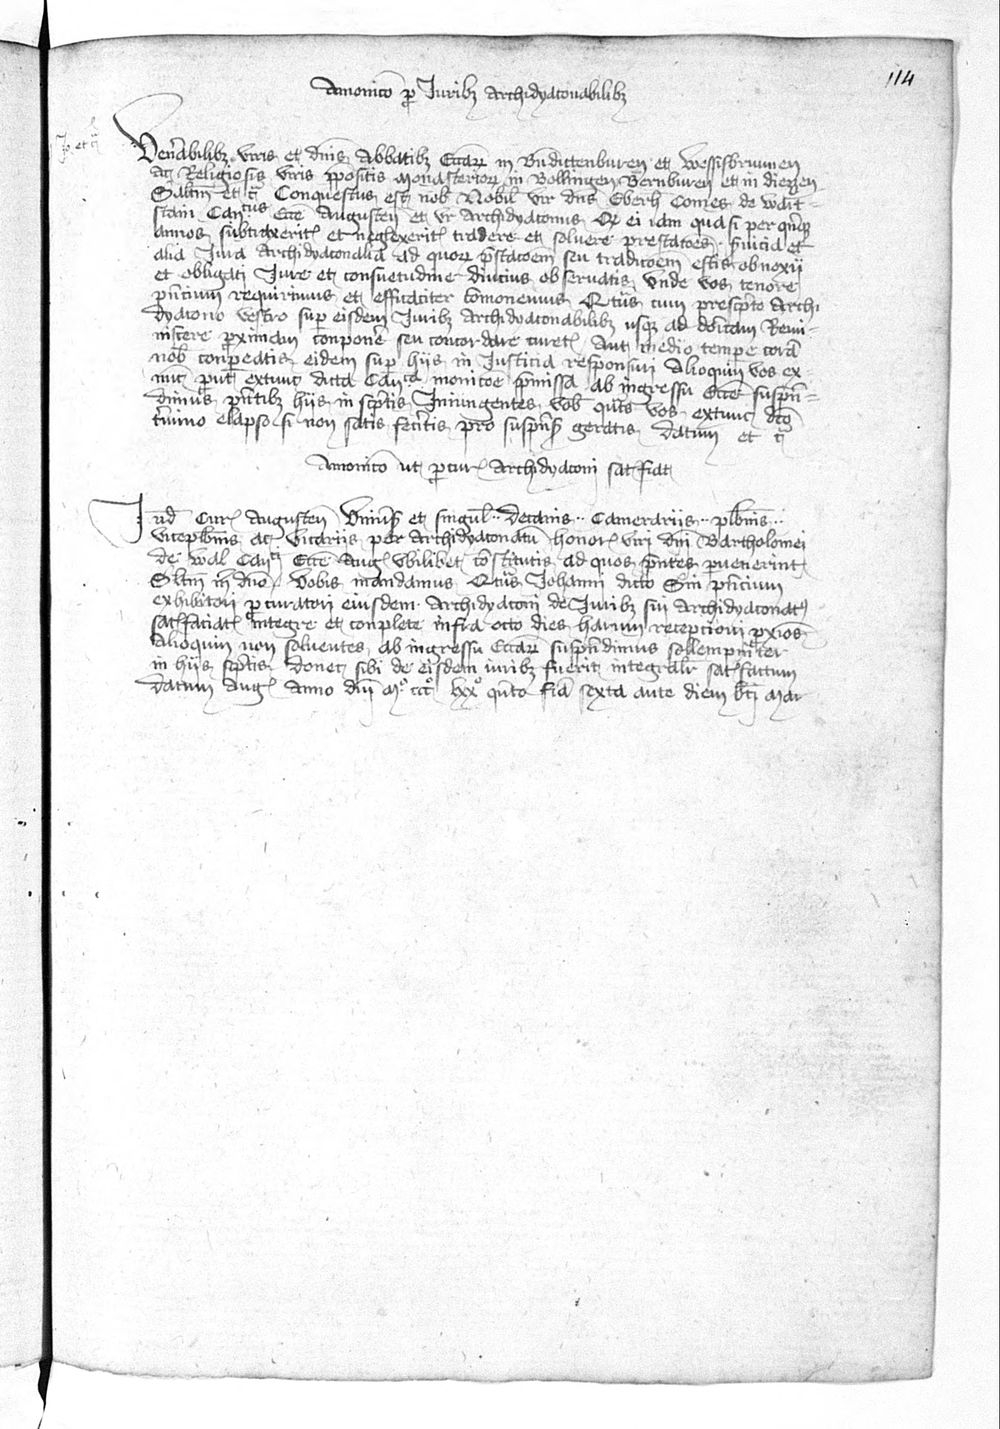 114
Amonicō ꝓ Juribꝫ Archidyaconabilibꝫ
Ven̄abilibꝫ viris et dn̄is Abbatibꝫ Ecc̄arꝝ in Bn̄dictenburen et wessisbrunnen
acꝫ Religiosis viris ꝓpositis Monasteriorꝝ in Bollingen Bernburen et in diezzen
Salm̄ et c̄ Conquestus est nob̄ Nobil̄ vir dn̄s Eberh Comes de wart-
stain Can̄cus Ecc̄e Augusten̄ et vr̄ Archidyaconus Qꝛ ei iam quasi per qn̄qꝫ
annos subtraxeritꝭ et neglexeritꝭ tradere et soluere prestatōes
alia Jura Archidyaconalia ad quorꝝ p̄stacōem seu tradicōem estis obnoxii
et obligati Jure et consuetudine diucius obseruatis vnde vos tenore
pn̄cium requirimus et efficaciter com̄onemus Qtūs cum prescpto Archi
dyacono vestro suꝑ eisdem Juribꝫ Archidyaconabilibꝫ usqꝫ ad dōicam Remi-
niscere ꝓximam conponē seu concordare curetꝭ Aut medio tempe corā
nob̄ conpeatis eidem suꝑ hiis in Justicia responsuri Alioquin vos ex-
nūc put̄ extunc dicta Can̄ca monicōe p̄missa ab ingressu Ecc̄e suspn̄-
dimus pn̄tibꝫ hiis in scptis Iniungentes vob̄ qtūs vos extunc dc̄o
t̄mino elapso si non satis fec̄itis pro suspn̄sꝭ geratis Datum et c̄
Amonicō ut ꝓcurꝭ Archidyaconi satꝭfiat
Jud̄ Curꝭ Augusten̄ Vniūsꝭ et singul̄ Decanis Camerariis plb̄nis
viceplb̄nis acꝫ vicariis per Archidyaconatū honorꝭ viri dn̄i Bartholomei
de wal Can̄ci Ecc̄e Augꝭ vbilibet cōstitutis ad quos pn̄tes puenerint
Sl̄tm in dn̄o Vobis mandamus Qtūs Johanni dicto Sm̄ pn̄cium
exhibitori ꝓcuratori eiusdem Archidyaconi de Juribꝫ sui Archidyaconatꝭ
satꝭfaciatꝭ integre et conplete infra octo dies harum recepcioni ꝓxiōs
Alioquin non soluentes ab ingressu Ecc̄arꝝ suspn̄dimus sollempniter
in hiis scptis Donec sibi de eisdem iuribꝫ fuerit integralr̄ satꝭfactum
Datum Augꝭ anno dn̄i Mº cccº lxxº qn̄to fīa sexta ante diem bt̄i Mar